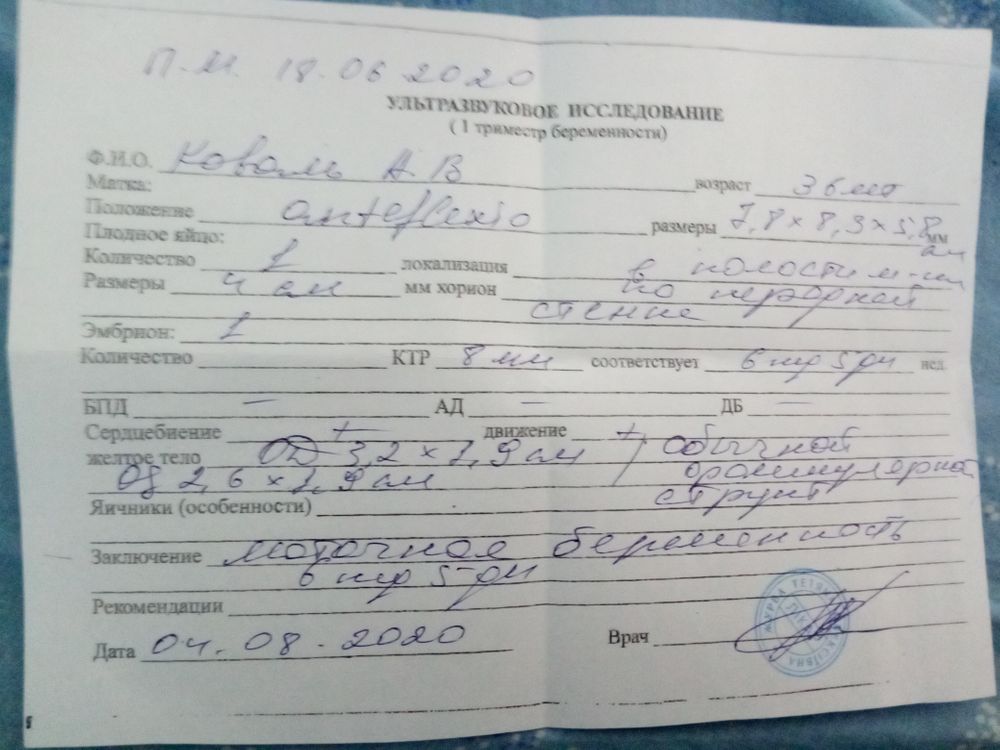 П.М. 18.06 2020
УЛЬТРАЗВУКОВОЕ ИССЛЕДОВАНИЕ
( 1 триместр беременности)
Ф.И.О. Коваль А. В возраст 36 лет
Матка:
Положение anteflexio размеры 7,8 х 8,3 х 5,8 мм
см
Плодное яйцо:
Количество 1 локализация в полости м-ки
Размеры 4 см мм хорион по передней
стенке
Эмбрион: 1
Количество КТР 8 мм соответствует 6 нед 5 дн нед
БПД — АД — ДБ —
Сердцебиение + движение +
желтое тело ОД 3,2 х 1,9 см обычной
OS 2,6 х 1,9 см фолликулярной
Яичники (особенности) структ
Заключение маточная беременность
6 нед 5-дн
Рекомендации
Дата 04.08.2020 Врач